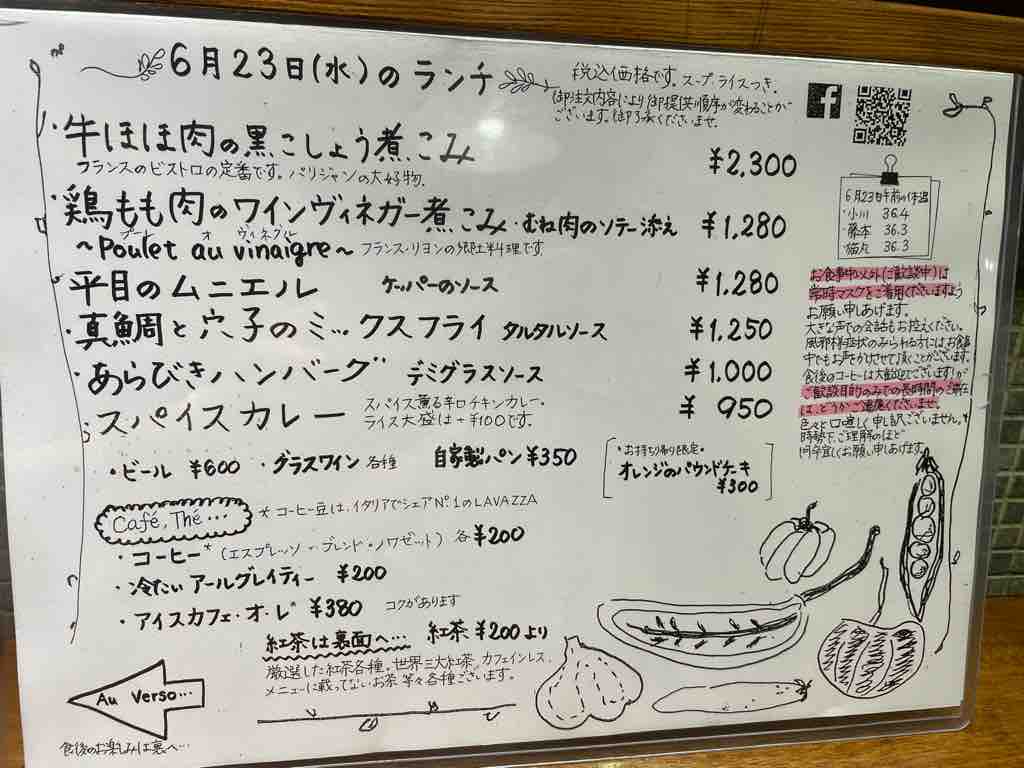 6月23日(水)のランチ
税込価格です。スープ・ライスつき。
御注文内容により御提供順序が変わることが
ございます。御了承くださいませ。
・牛ほほ肉の黒こしょう煮こみ ¥2,300
フランスのビストロの定番です。パリジャンの大好物。
・鶏もも肉のワインヴィネガー煮こみ・むね肉のソテー添え ¥1,280
プーレ オ ヴィネグル
~Poulet au vinaigre~ フランス・リヨンの郷土料理です。
・平目のムニエル ケッパーのソース ¥1,280
・真鯛と穴子のミックスフライ タルタルソース ¥1,250
・あらびきハンバーグ デミグラスソース ¥1,000
・スパイスカレー スパイス薫る辛口チキンカレー。 ¥950
ライス大盛は+¥100です。
・ビール ¥600 ・グラスワイン各種 自家製パン¥350
・お持ち帰り限定・
オレンジのパウンドケーキ
¥300
Café, Thé…
*コーヒー豆は、イタリアでシェアNo.1のLAVAZZA
・コーヒー*(エスプレッソ・ブレンド・ノワゼット) 各¥200
・冷たいアールグレイティー ¥200
・アイスカフェ・オ・レ ¥380 コクがあります
紅茶は裏面へ… 紅茶¥200より
厳選した紅茶各種。世界三大紅茶。カフェインレス。
メニューに載ってないお茶 等々各種ございます。
Au Verso…
食後のお楽しみは裏へ…
6月23日午前の体温
・小川 36.4
・藤本 36.3
・猫丸 36.3
お食事中以外(ご歓談中)は
常時マスクをご着用くださいますよう
お願い申しあげます。
大きな声での会話もお控えください。
風邪様症状のみられる方には、お食事
中でもお声かけさせて頂くことがございます。
食後のコーヒーは大歓迎でございますが
ご歓談目的のみでの長時間のご滞在
は、どうかご遠慮くださいませ。
色々と口喧しく申し訳ございません。
時勢下、ご理解のほど
何卒宜しくお願い申しあげます。